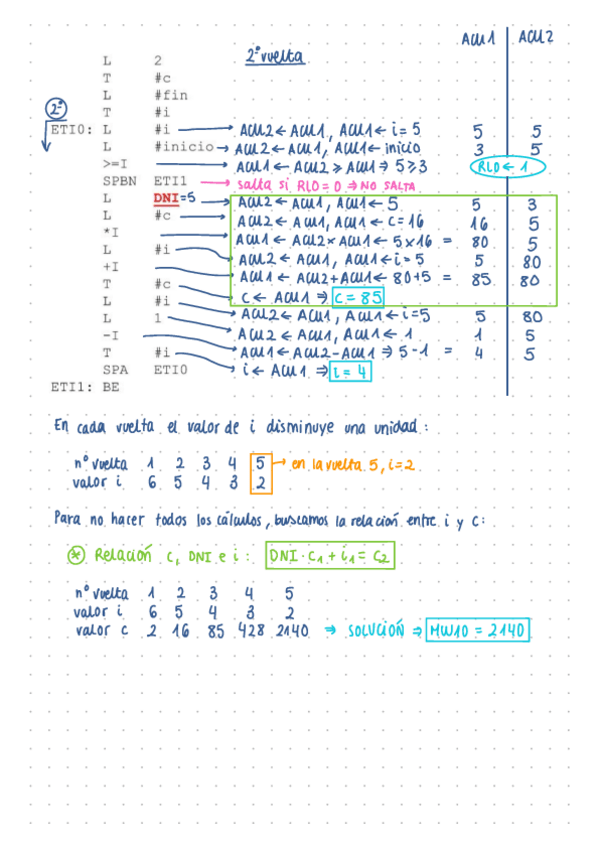 2ª vuelta
ACU1 ACU2
L 2
T #c
L #fin
T #i
2ª
ETI0: L #i → ACU2 ← ACU1, ACU1 ← i = 5 5 5
L #inicio → ACU2 ← ACU1, ACU1 ← inicio 3 5
>=I → ACU1 ← ACU2 ≥ ACU1 ⇒ 5 ≥ 3 RLO ← 1
SPBN ETI1 → salta si RLO = 0 ⇒ NO SALTA
L DNI=5 → ACU2 ← ACU1, ACU1 ← 5 5 3
L #c → ACU2 ← ACU1, ACU1 ← C = 16 16 5
*I → ACU1 ← ACU2 × ACU1 ← 5 × 16 = 80 5
L #i → ACU2 ← ACU1, ACU1 ← i = 5 5 80
+I → ACU1 ← ACU2 + ACU1 ← 80 + 5 = 85 80
T #c → C ← ACU1 ⇒ C = 85
L #i → ACU2 ← ACU1, ACU1 ← i = 5 5 80
L 1 → ACU2 ← ACU1, ACU1 ← 1 1 5
-I → ACU1 ← ACU2 - ACU1 ⇒ 5 - 1 = 4 5
T #i → i ← ACU1 ⇒ i = 4
SPA ETI0
ETI1: BE
En cada vuelta el valor de i disminuye una unidad:
nº vuelta 1 2 3 4 5 → en la vuelta 5, i = 2
valor i 6 5 4 3 2
Para no hacer todos los cálculos, buscamos la relación entre i y C:
* Relación C, DNI e i: DNI · C1 + i1 = C2
nº vuelta 1 2 3 4 5
valor i 6 5 4 3 2
valor c 2 16 85 428 2140 ⇒ SOLUCIÓN ⇒ MW10 = 2140